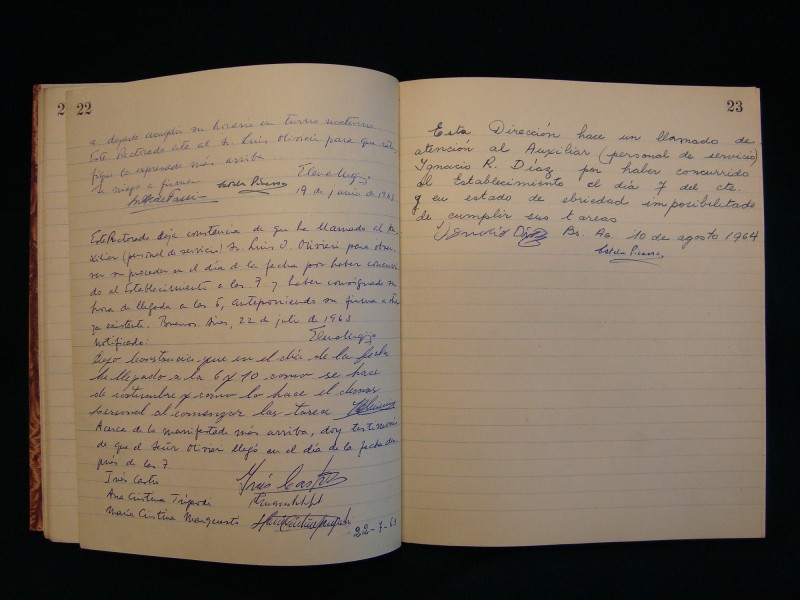 2 22
a dejado cumplir su horario en turno nocturno
Este Rectorado cita al Sr. Luis Olivieri para que
lo expresado más arriba
se niega a firmar
19 de junio de 1963
Este Rectorado deja constancia de que ha llamado al Au-
xiliar (personal de servicio) Sr. Luis O. Olivieri para obser-
var su proceder en el día de la fecha por haber concurri-
do al establecimiento a las 7 y haber consignado su
hora de llegada a las 6, anteponiendo su firma a otra
ya existente. Buenos Aires, 22 de julio de 1963
Notificado:
Dejo constancia que en el día de la fecha
he llegado a la 6 y 10 como se hace
de costumbre y como lo hace el demas
personal al comenzar las tarea
Acerca de lo manifestado más arriba, doy testimonio
de que el Señor Olivieri llegó en el día de la fecha des-
pués de las 7
Inés Castro Inés Castro
Ana Cristina Trípodi
María Cristina
22-7-63
23
Esta Dirección hace un llamado de
atención al Auxiliar (personal de servicio)
Ignacio R. Díaz por haber concurrido
al Establecimiento el día 7 del cte.
y en estado de ebriedad imposibilitado
de cumplir sus tareas
Ignacio Díaz Bs. As. 10 de agosto 1964